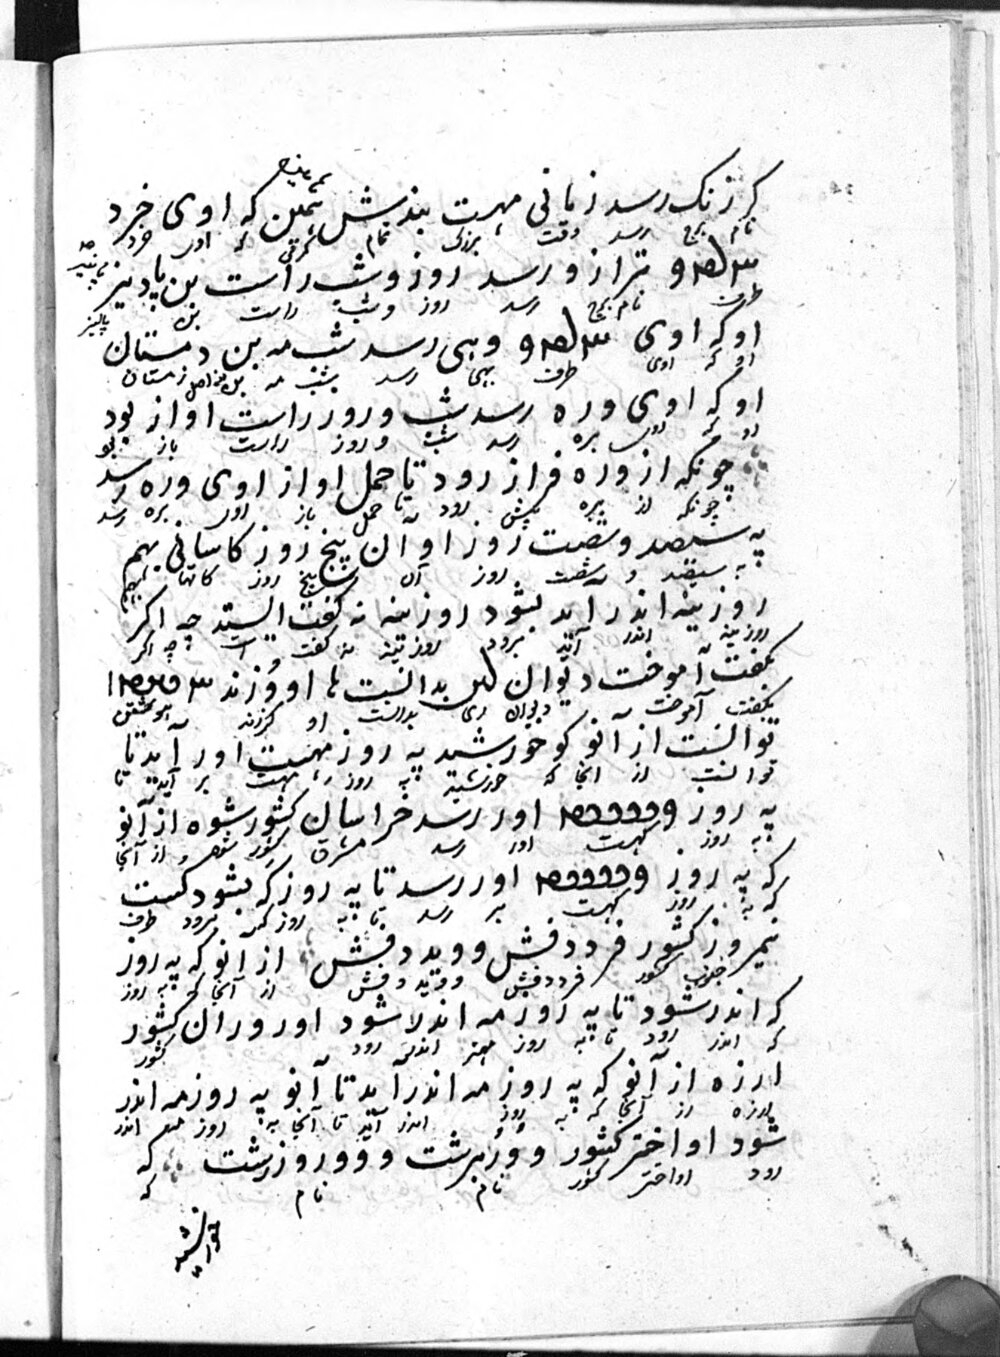 کرزنک رسد زمانی مهست بندبش همکین که اوی خرد
نام برج رسد وقت بزرگ تمام گرفتن که اوی خرد
و ترازو رسد روز وشب راست بن پادیز
طرف نام برج رسد روز و شب راست بن پائیز
او که اوی و وهی رسد شب مه بن دمستان
او که اوی طرف بهی رسد شب مه بن زمستان
او که اوی وره رسد شب و روز راست اواز بود
او که اوی بره رسد شب و روز راست باز بود
چونکه از وره فراز رود تا حمل اواز اوی وره رسد
چونکه از بره پیش رود تا حمل باز اوی بره رسد
په سیصد و شصت روز او آن پنج روز کاسانی بهم
به سیصد و شصت روز آن پنج روز کاتها بهم
روزینه اندر آید بشود روزینه نه گفت ایستد چه اگر
روزینه اندر آید برود روزینه نه گفت است چه اگر
بگفت آموخت دیوان بدانست ها او وزند
بگفت آموخت دیوان بدانست او گزند
توانست از آنو کو خورشید په روز مهست اور آید تا
توانست از آنجا که خورشید به روز مهست بر آید تا
په روز اور رسد خراسان کشور شوه از آنو
به روز کهست اور رسد مشرق کشور از آنجا
که په روز اور رسد تا په روز که بشود کست
که به روز کهست بر رسد تا به روز که برود طرف
نیمروز کشور فرددفش و ویددفش از آنو که په روز
جنوب کشور فرددفش و ویددفش از آنجا که به روز
که اندر شود تا په روز مه اندر شود اوروران کشور
که اندر رود تا به روز مهتر اندر رود کشور
ارزه از آنو که په روز مه اندر آید تا آنو په روز مه اندر
ارزه از آنجا که به روز اندر آید تا آنجا به روز مه اندر
شود اواختر کشور ووربرشت و ووروزرشت که
رود اواختر کشور نام نام که
خورشید